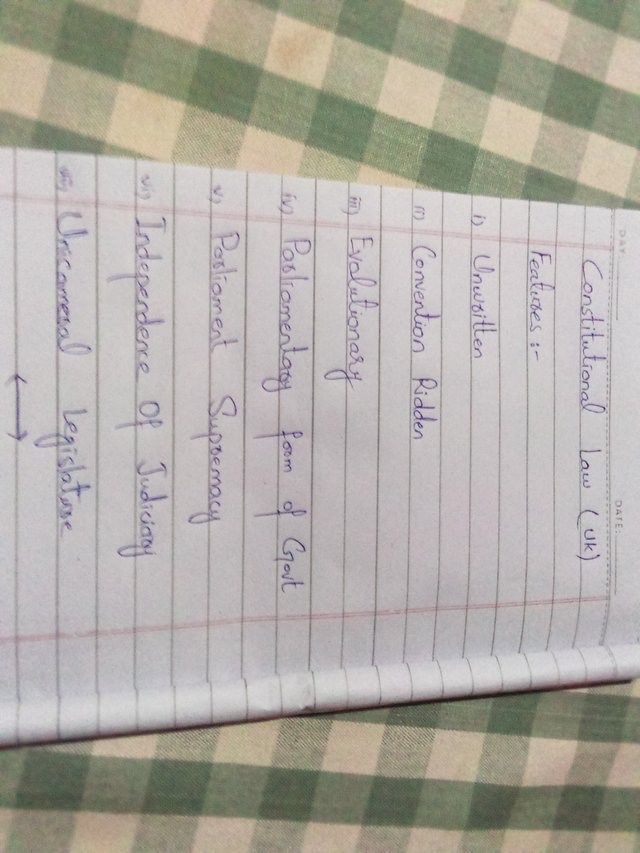 DAY
DATE:
Constitutional Law (UK)
Features :-
i) Unwritten
ii) Convention Ridden
iii) Evalutionary
iv) Parliamentary form of Govt
v) Parliament Supremacy
vi) Independence Of Judiciary
vii) Unicameral Legislature